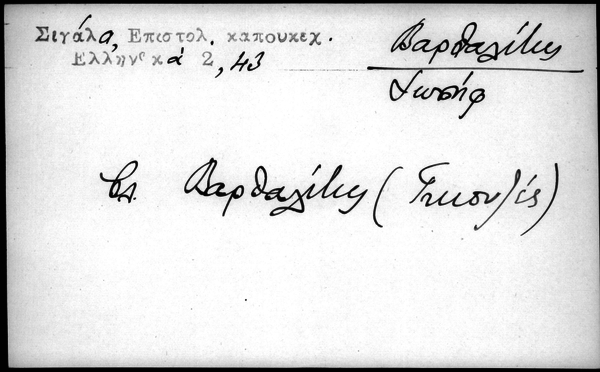 Σιγάλα, Επιστολ. καπουκεχ.
Ελληνικά 2, 43
Βαρθαλίτης
Ιωσήφ
Βλ. Βαρθαλίτης (Γκιουζές)